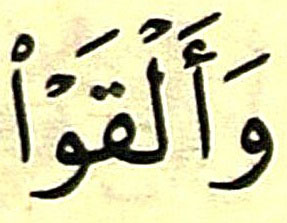 وَأَلْقَوْاْ